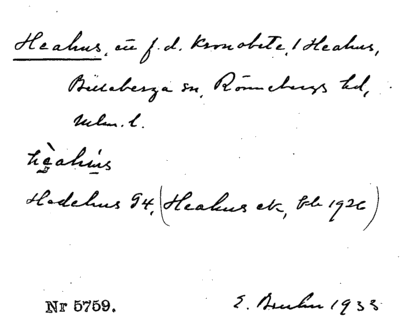 Heahus, en f.d. Kronobete, 1 Heahus,
Billeberga sn, Rönnebergs hd,
Mlm. l.
hèahùs
Hedehus 94, (Heahus ek, 1926)
Nr 5759. E. Bruhn 1933